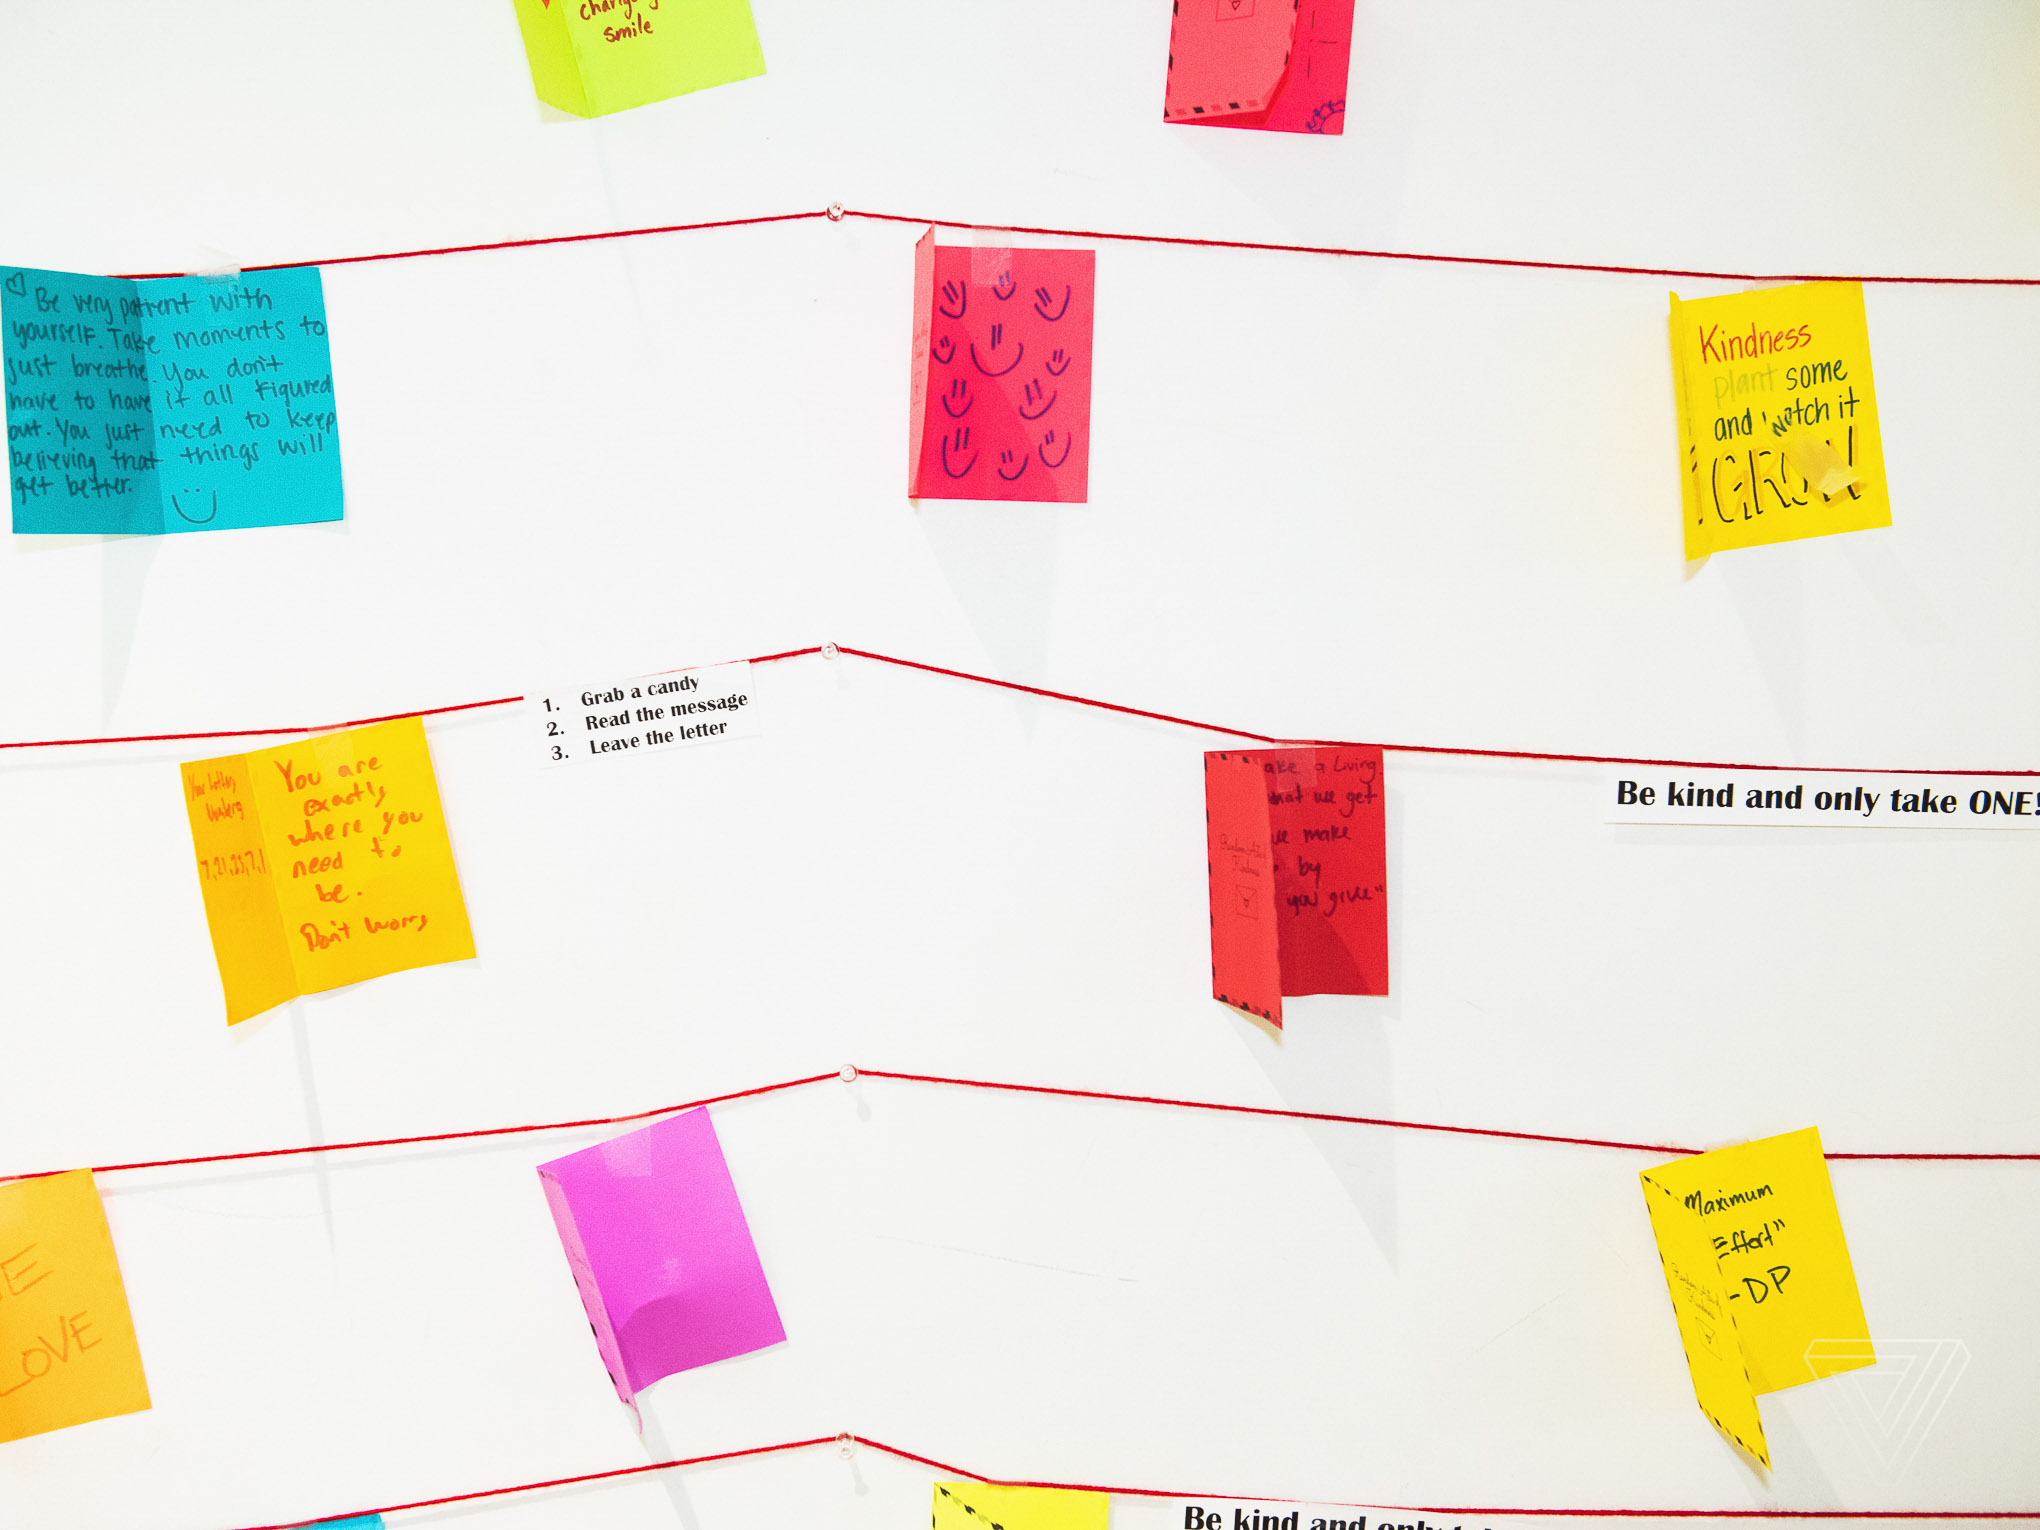 smile
Be very patient with
yourself. Take moments to
just breathe. You don't
have to have it all figured
out. You just need to keep
believing that things will
get better.
Kindness
plant some
and watch it
GROW
1. Grab a candy
2. Read the message
3. Leave the letter
You are
exactly
where you
need to
be.
Don't worry
7, 21, 25, 7, 1
ake a Living.
what we get
we make
by
you give"
Random Act of
Kindness
Be kind and only take ONE!
E
LOVE
Maximum
Effort"
-DP
Be kind and only